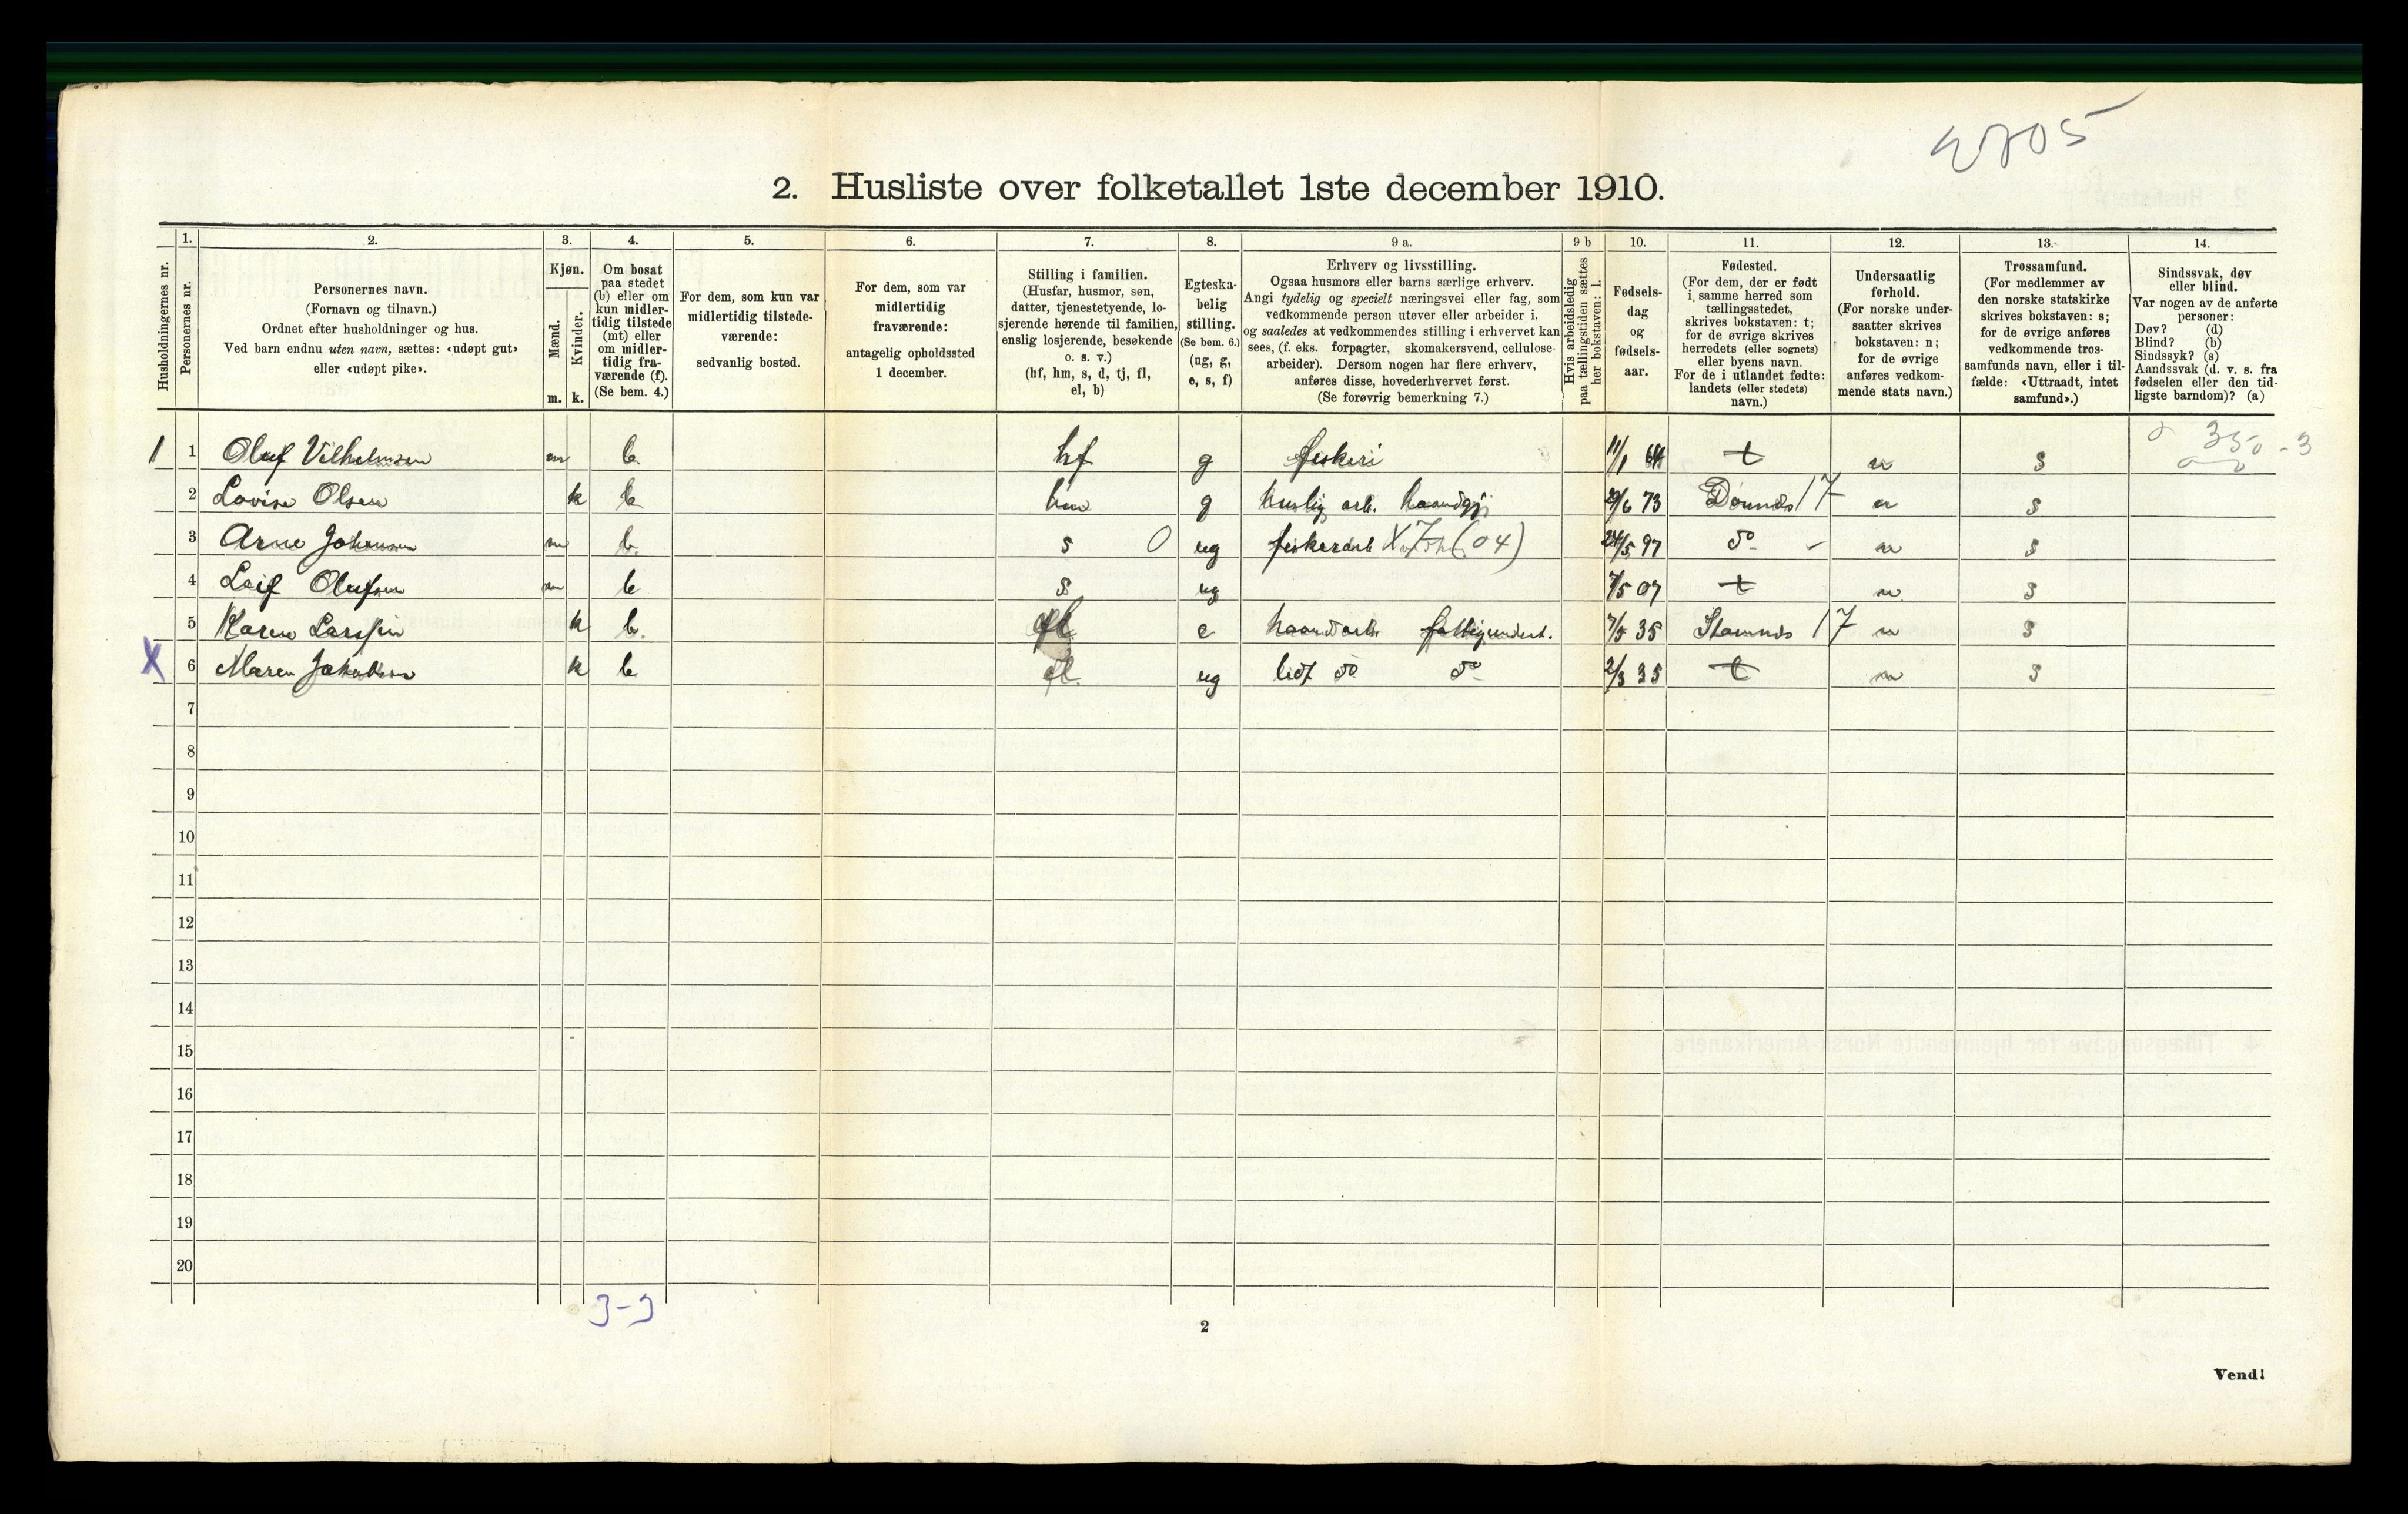 2705
2. Husliste over folketallet 1ste december 1910.
Husholdningernes nr.
1.
Personernes nr.
2.
Personernes navn.
(Fornavn og tilnavn.)
Ordnet efter husholdninger og hus.
Ved barn endnu uten navn, sættes: «udøpt gut»
eller «udøpt pike».
3.
Kjøn.
Mænd.
Kvinder.
m. k.
4.
Om bosat
paa stedet
(b) eller om
kun midler-
tidig tilstede
(mt) eller
om midler-
tidig fra-
værende (f).
(Se bem. 4.)
5.
For dem, som kun var
midlertidig tilstede-
værende:
sedvanlig bosted.
6.
For dem, som var
midlertidig
fraværende:
antagelig opholdssted
1 december.
7.
Stilling i familien.
(Husfar, husmor, søn,
datter, tjenestetyende, lo-
sjerende hørende til familien,
enslig losjerende, besøkende
o. s. v.)
(hf, hm, s, d, tj, fl,
el, b)
8.
Egteska-
belig
stilling.
(Se bem. 6.)
(ug, g,
e, s, f)
9 a.
Erhverv og livsstilling.
Ogsaa husmors eller barns særlige erhverv.
Angi tydelig og specielt næringsvei eller fag, som
vedkommende person utøver eller arbeider i,
og saaledes at vedkommendes stilling i erhvervet kan
sees, (f. eks. forpagter, skomakersvend, cellulose-
arbeider). Dersom nogen har flere erhverv,
anføres disse, hovederhvervet først.
(Se forøvrig bemerkning 7.)
9 b
Hvis arbeidsledig
paa tællingstiden sættes
her bokstaven: l.
10.
Fødsels-
dag
og
fødsels-
aar.
11.
Fødested.
(For dem, der er født
i samme herred som
tællingsstedet,
skrives bokstaven: t;
for de øvrige skrives
herredets (eller sognets)
eller byens navn.
For de i utlandet fødte:
landets (eller stedets)
navn.)
12.
Undersaatlig
forhold.
(For norske under-
saatter skrives
bokstaven: n;
for de øvrige
anføres vedkom-
mende stats navn.)
13.
Trossamfund.
(For medlemmer av
den norske statskirke
skrives bokstaven: s;
for de øvrige anføres
vedkommende tros-
samfunds navn, eller i til-
fælde: «Uttraadt, intet
samfund».)
14.
Sindssvak, døv
eller blind.
Var nogen av de anførte
personer:
Døv? (d)
Blind? (b)
Sindssyk? (s)
Aandssvak (d. v. s. fra
fødselen eller den tid-
ligste barndom)? (a)
1 1 Oluf Vilhelmsen m b hf g fiskeri 11/1 64 t n s 350-3
2 Lovise Olsen k b hm g huslig arb. haandgj 29/6 73 Dønnes 17 n s
3 Arne Johansen m b. s 0 ug fiskerarb X 7 (04) 24/5 97 do - n s
4 Leif Olufsen m b s ug 7/5 07 t n s
5 Karen Larssen k b. fl e haandarb. fattigunderst. 7/5 35 Stamnes 17 n s
X 6 Maren Jakobsen k b fl. ug lidt do do 2/3 35 t n s
7
8
9
10
11
12
13
14
15
16
17
18
19
20
3-3
2
Vend!